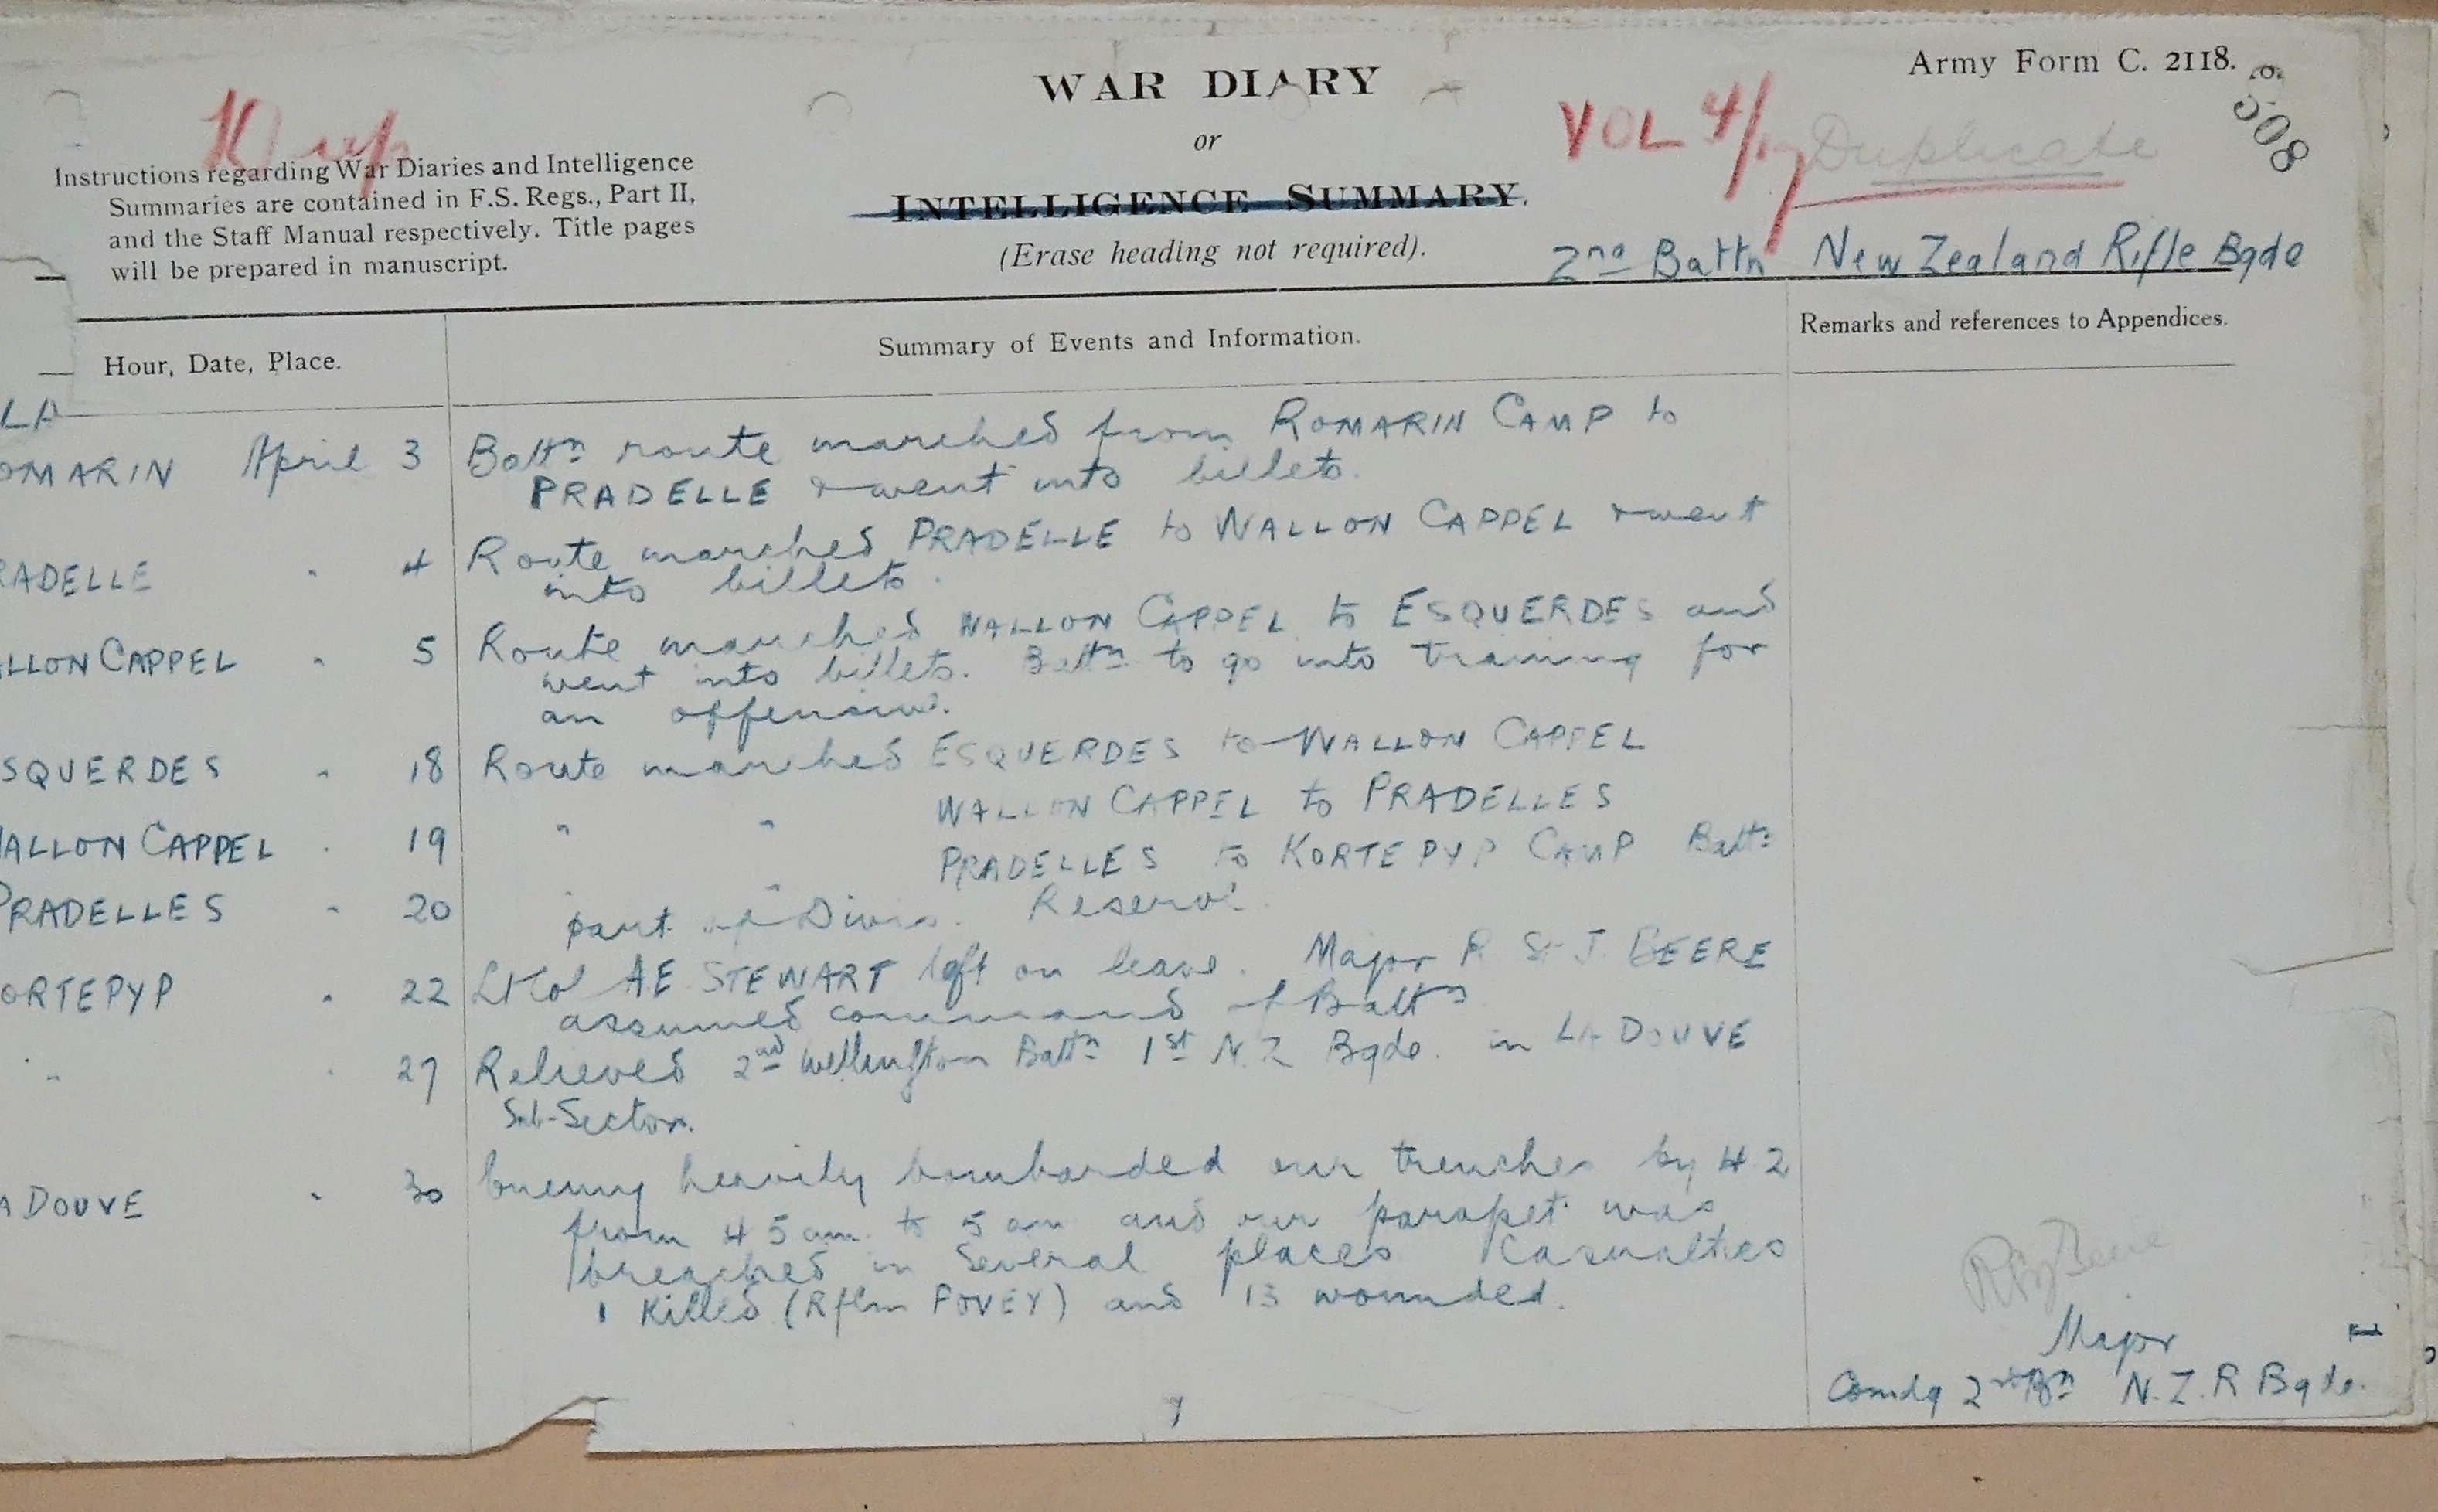 WAR DIARY
or
INTELLIGENCE SUMMARY.
(Erase heading not required).
Army Form C. 2118.
508
VOL 4/17
Duplicate
Instructions regarding War Diaries and Intelligence
Summaries are contained in F.S. Regs., Part II,
and the Staff Manual respectively. Title pages
will be prepared in manuscript.
2nd Battn New Zealand Rifle Bgde
Hour, Date, Place.
Summary of Events and Information.
Remarks and references to Appendices.
LA
OMARIN April 3 Battn route marched from ROMARIN CAMP to
PRADELLE & went into billets.
RADELLE " 4 Route marched PRADELLE to WALLON CAPPEL & went
into billets.
ALLON CAPPEL " 5 Route marched WALLON CAPPEL to ESQUERDES and
went into billets. Battn to go into training for
an offensive.
SQUERDES " 18 Route marched ESQUERDES to WALLON CAPPEL
WALLON CAPPEL " 19 " " WALLON CAPPEL to PRADELLES
PRADELLES " 20 " " PRADELLES to KORTEPYP CAMP Battn
part of Divn. Reserve.
ORTEPYP " 22 Lt Col A.E. STEWART left on leave. Major R St J. BEERE
assumed command of Battn
" " 27 Relieved 2nd Wellington Battn 1st N.Z Bgde. in LA DOUVE
Sub-Sector.
A DOUVE " 30 Enemy heavily bombarded our trenches by 4.2
from 4 5 am. to 5 am and our parapet was
breached in several places Casualties
1 Killed (Rflm POVEY) and 13 wounded.
Beere
Major
Comdg 2nd Bn N.Z.R Bgde.